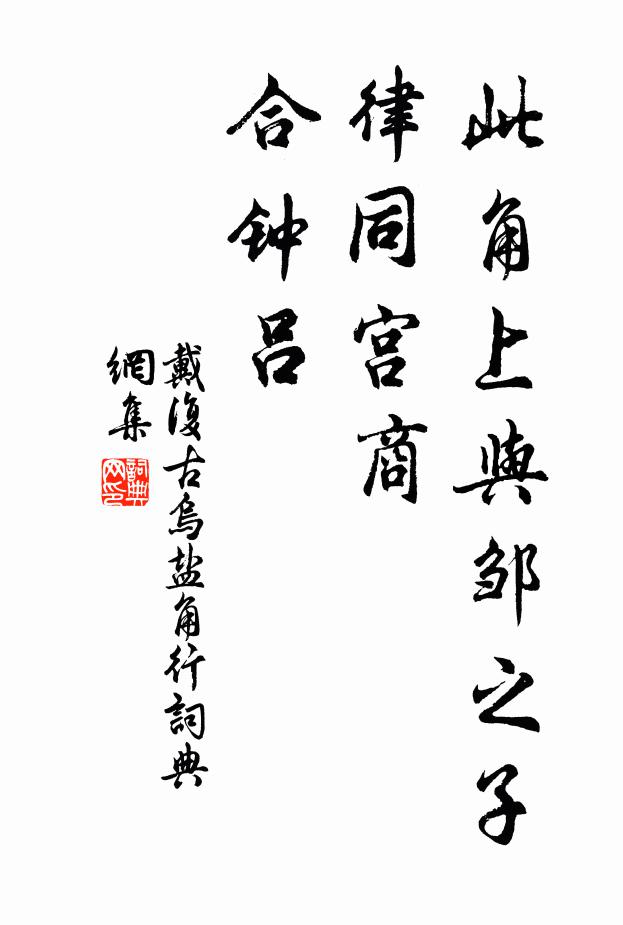 此角上與邹之子
律同宫商
合钟吕
戴復古烏盐角行詞典
網集
詞典网印